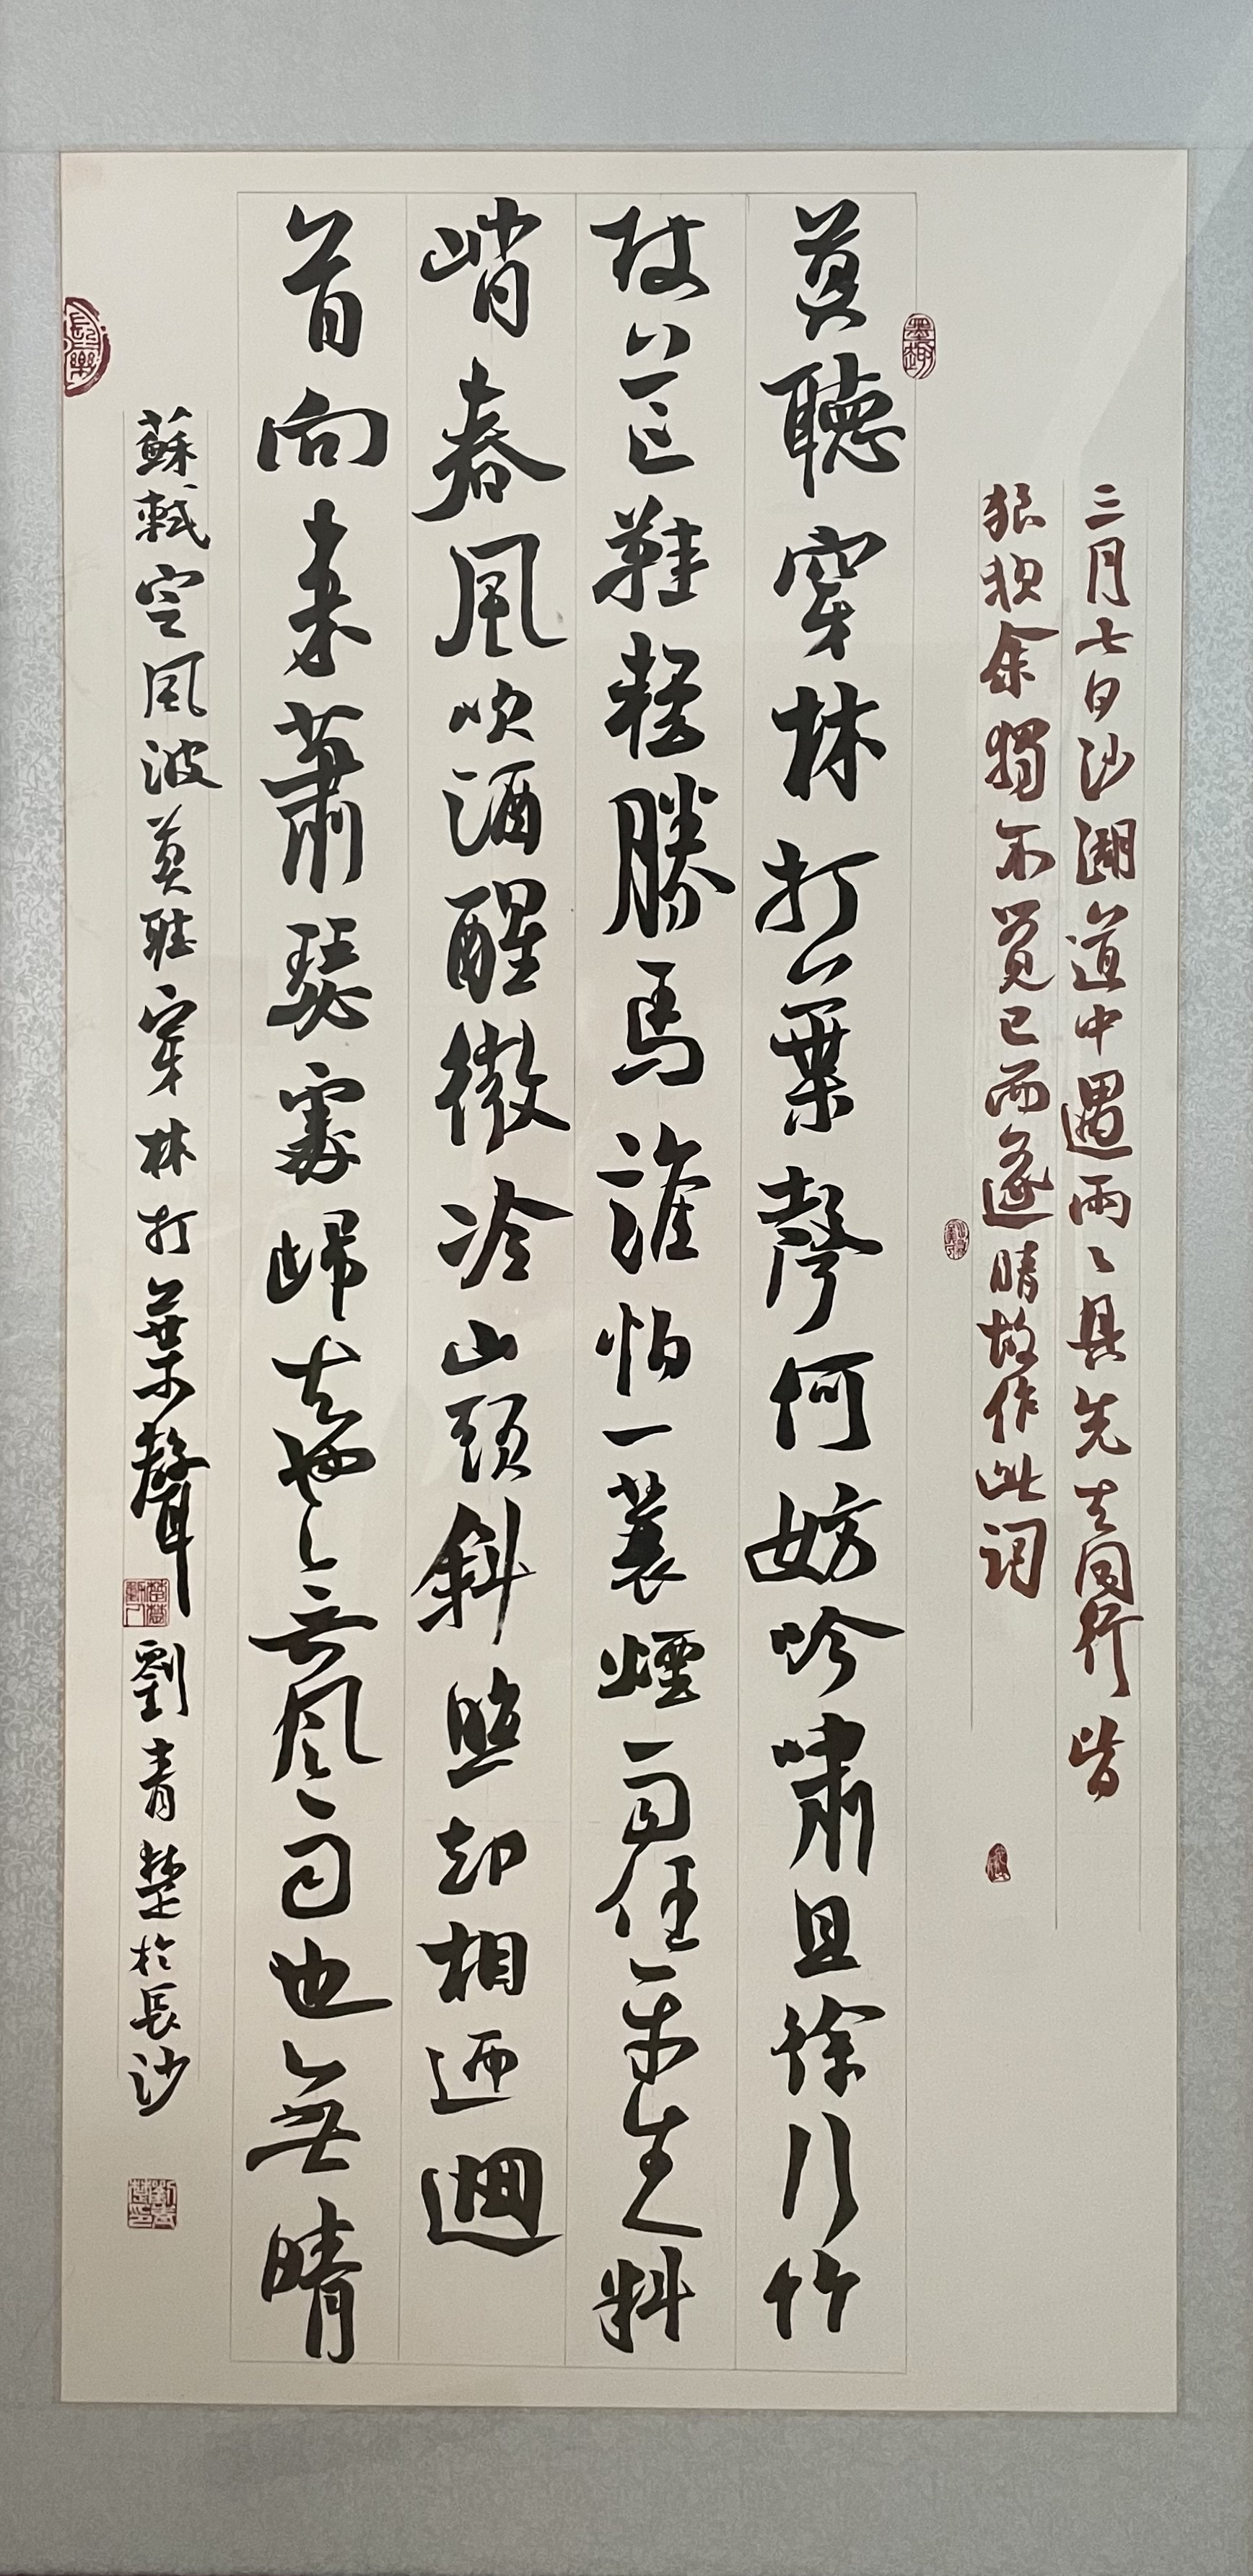 三月七日沙湖道中遇雨〻具先去同行皆
狼狽余獨不覺已而遂晴故作此詞
墨趣
莫聽穿林打葉聲何妨吟嘯且徐行竹
杖芒鞋輕勝馬誰怕一蓑煙雨任平生料
峭春風吹酒醒微冷山頭斜照却相迎迴
首向來蕭瑟處歸去也無風雨也無晴
蘇軾定風波莫聽穿林打葉聲劉青楚於長沙
長樂